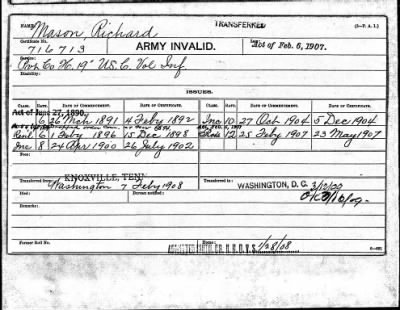 NAME: Mason, Richard TRANSFERRED (3-P. A. I.)
Certificate No. 716713 ARMY INVALID. Act of Feb. 6, 1907.
Service: Co. H. 19" U.S.C. Vol Inf.
Disability:
ISSUES.
CLASS. RATE. DATE OF COMMENCEMENT. DATE OF CERTIFICATE. CLASS. RATE. DATE OF COMMENCEMENT. DATE OF CERTIFICATE.
Act of June 27, 1890.
6 26 Mch 1891 4 Feby 1892 Inc 10 27 Oct 1904 5 Dec 1904
6 1 Feby 1896 15 Dec 1898 12 25 Feby 1907 23 May 1907
Inc 8 24 Apr 1900 26 July 1902
Transferred from: KNOXVILLE, TEN. Transferred to: WASHINGTON, D. C. 3/12/09
Washington 7 Feby 1908
Remarks:
Former Roll No. Home: 1/28/08